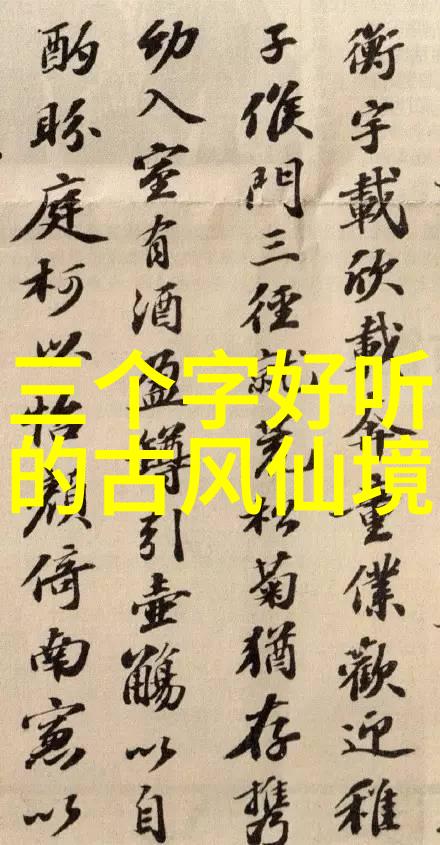 三个字好听
的古风仙境
衡宇載欣載奔童僕歡迎稚
子候門三徑就荒松菊猶存携
幼入室有酒盈罇引壺觴以自
酌眄庭柯以怡顏倚南窻以